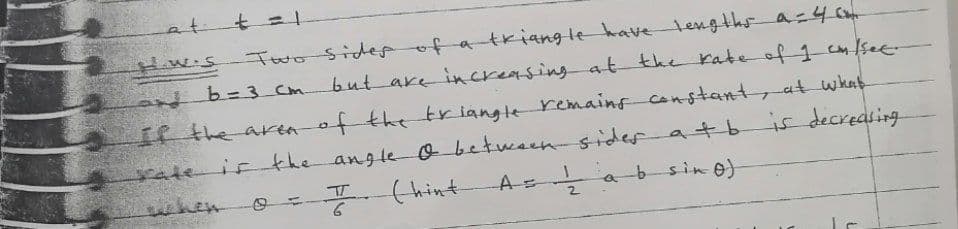 at t = 1
H.W.5 Two sides of a triangle have lengths a = 4 cm
and b = 3 cm but are increasing at the rate of 1 cm/sec.
If the area of the triangle remains constant, at what
rate is the angle θ between sides a + b is decreasing
when θ = π/6. (hint A = 1/2 a b sin θ)